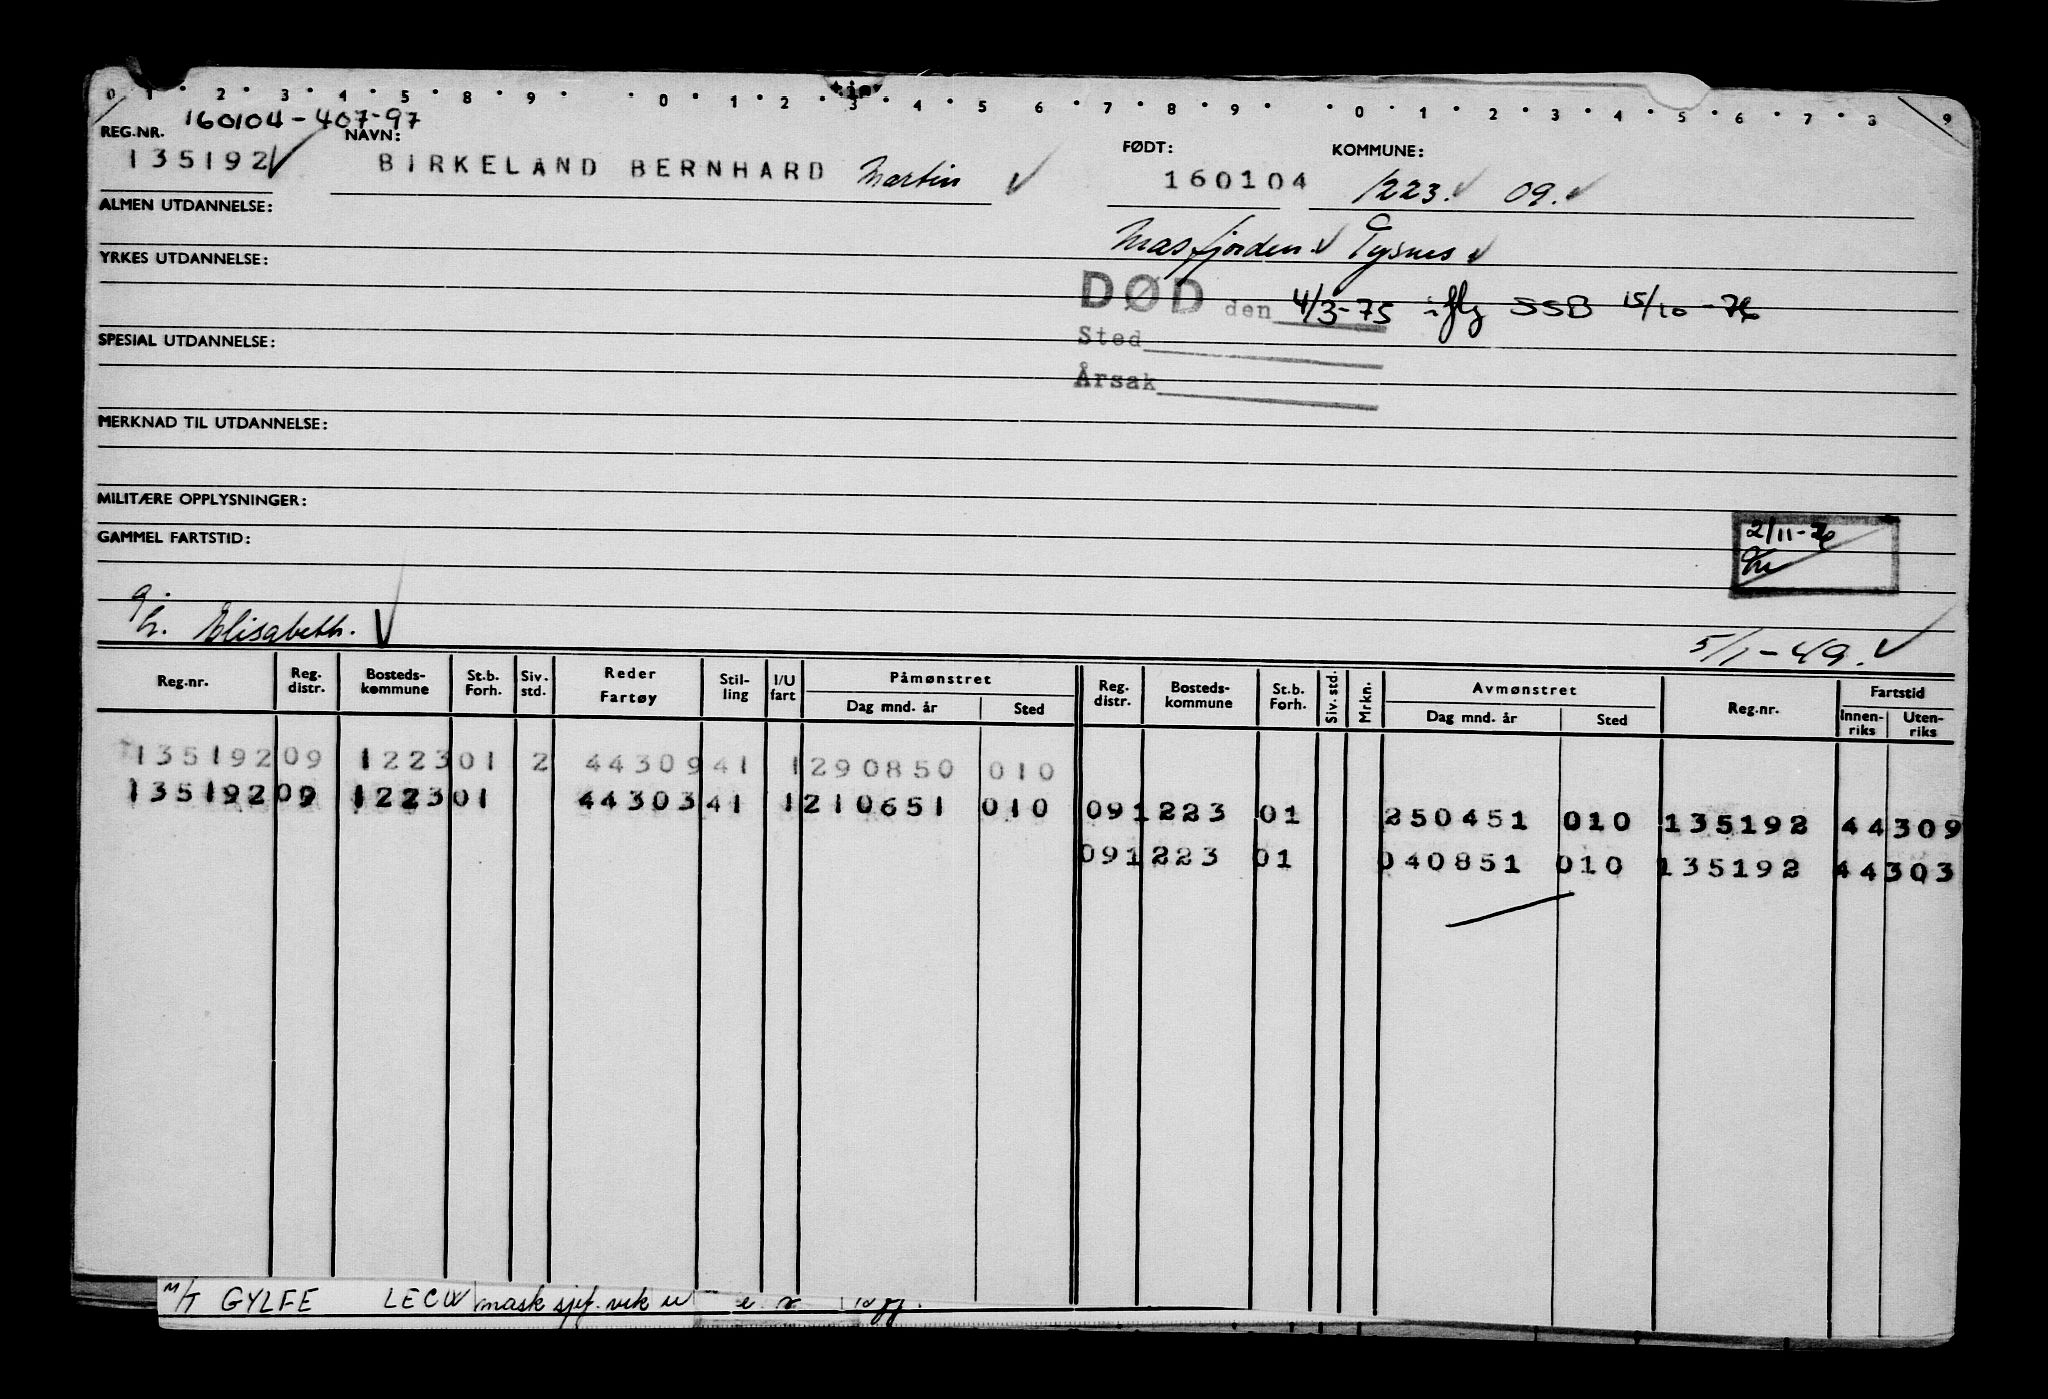 0 1 2 3 4 5 8 9 0 1 2 3 4 5 6 7 8 9 0 1 2 3 4 5 6 7 8 9
160104-407-97
REG.NR. NAVN: FØDT: KOMMUNE:
135192 BIRKELAND BERNHARD Martin 160104 1223. 09.
ALMEN UTDANNELSE:
Masfjorden. Tysnes
YRKES UTDANNELSE:
DØD den 4/3-75 iflg SSB 15/10-76
Sted
SPESIAL UTDANNELSE:
Årsak
MERKNAD TIL UTDANNELSE:
MILITÆRE OPPLYSNINGER:
2/11-76
GAMMEL FARTSTID:
Elisabeth. 5/1-49.
Reg.nr. Reg. distr. Bosteds-kommune St.b. Forh. Siv. std. Reder Fartøy Stil-ling I/U fart Påmønstret Dag mnd. år Sted Reg. distr. Bosteds-kommune St.b. Forh. Siv. std. Mrkn. Avmønstret Dag mnd. år Sted Reg.nr. Fartstid Innen-riks Uten-riks
135192 09 1223 01 2 44309 41 1 290850 010
135192 09 1223 01 44303 41 1 210651 010 09 1223 01 250451 010 135192 44309
09 1223 01 040851 010 135192 44303
M/T GYLFE LECW mask sjef.